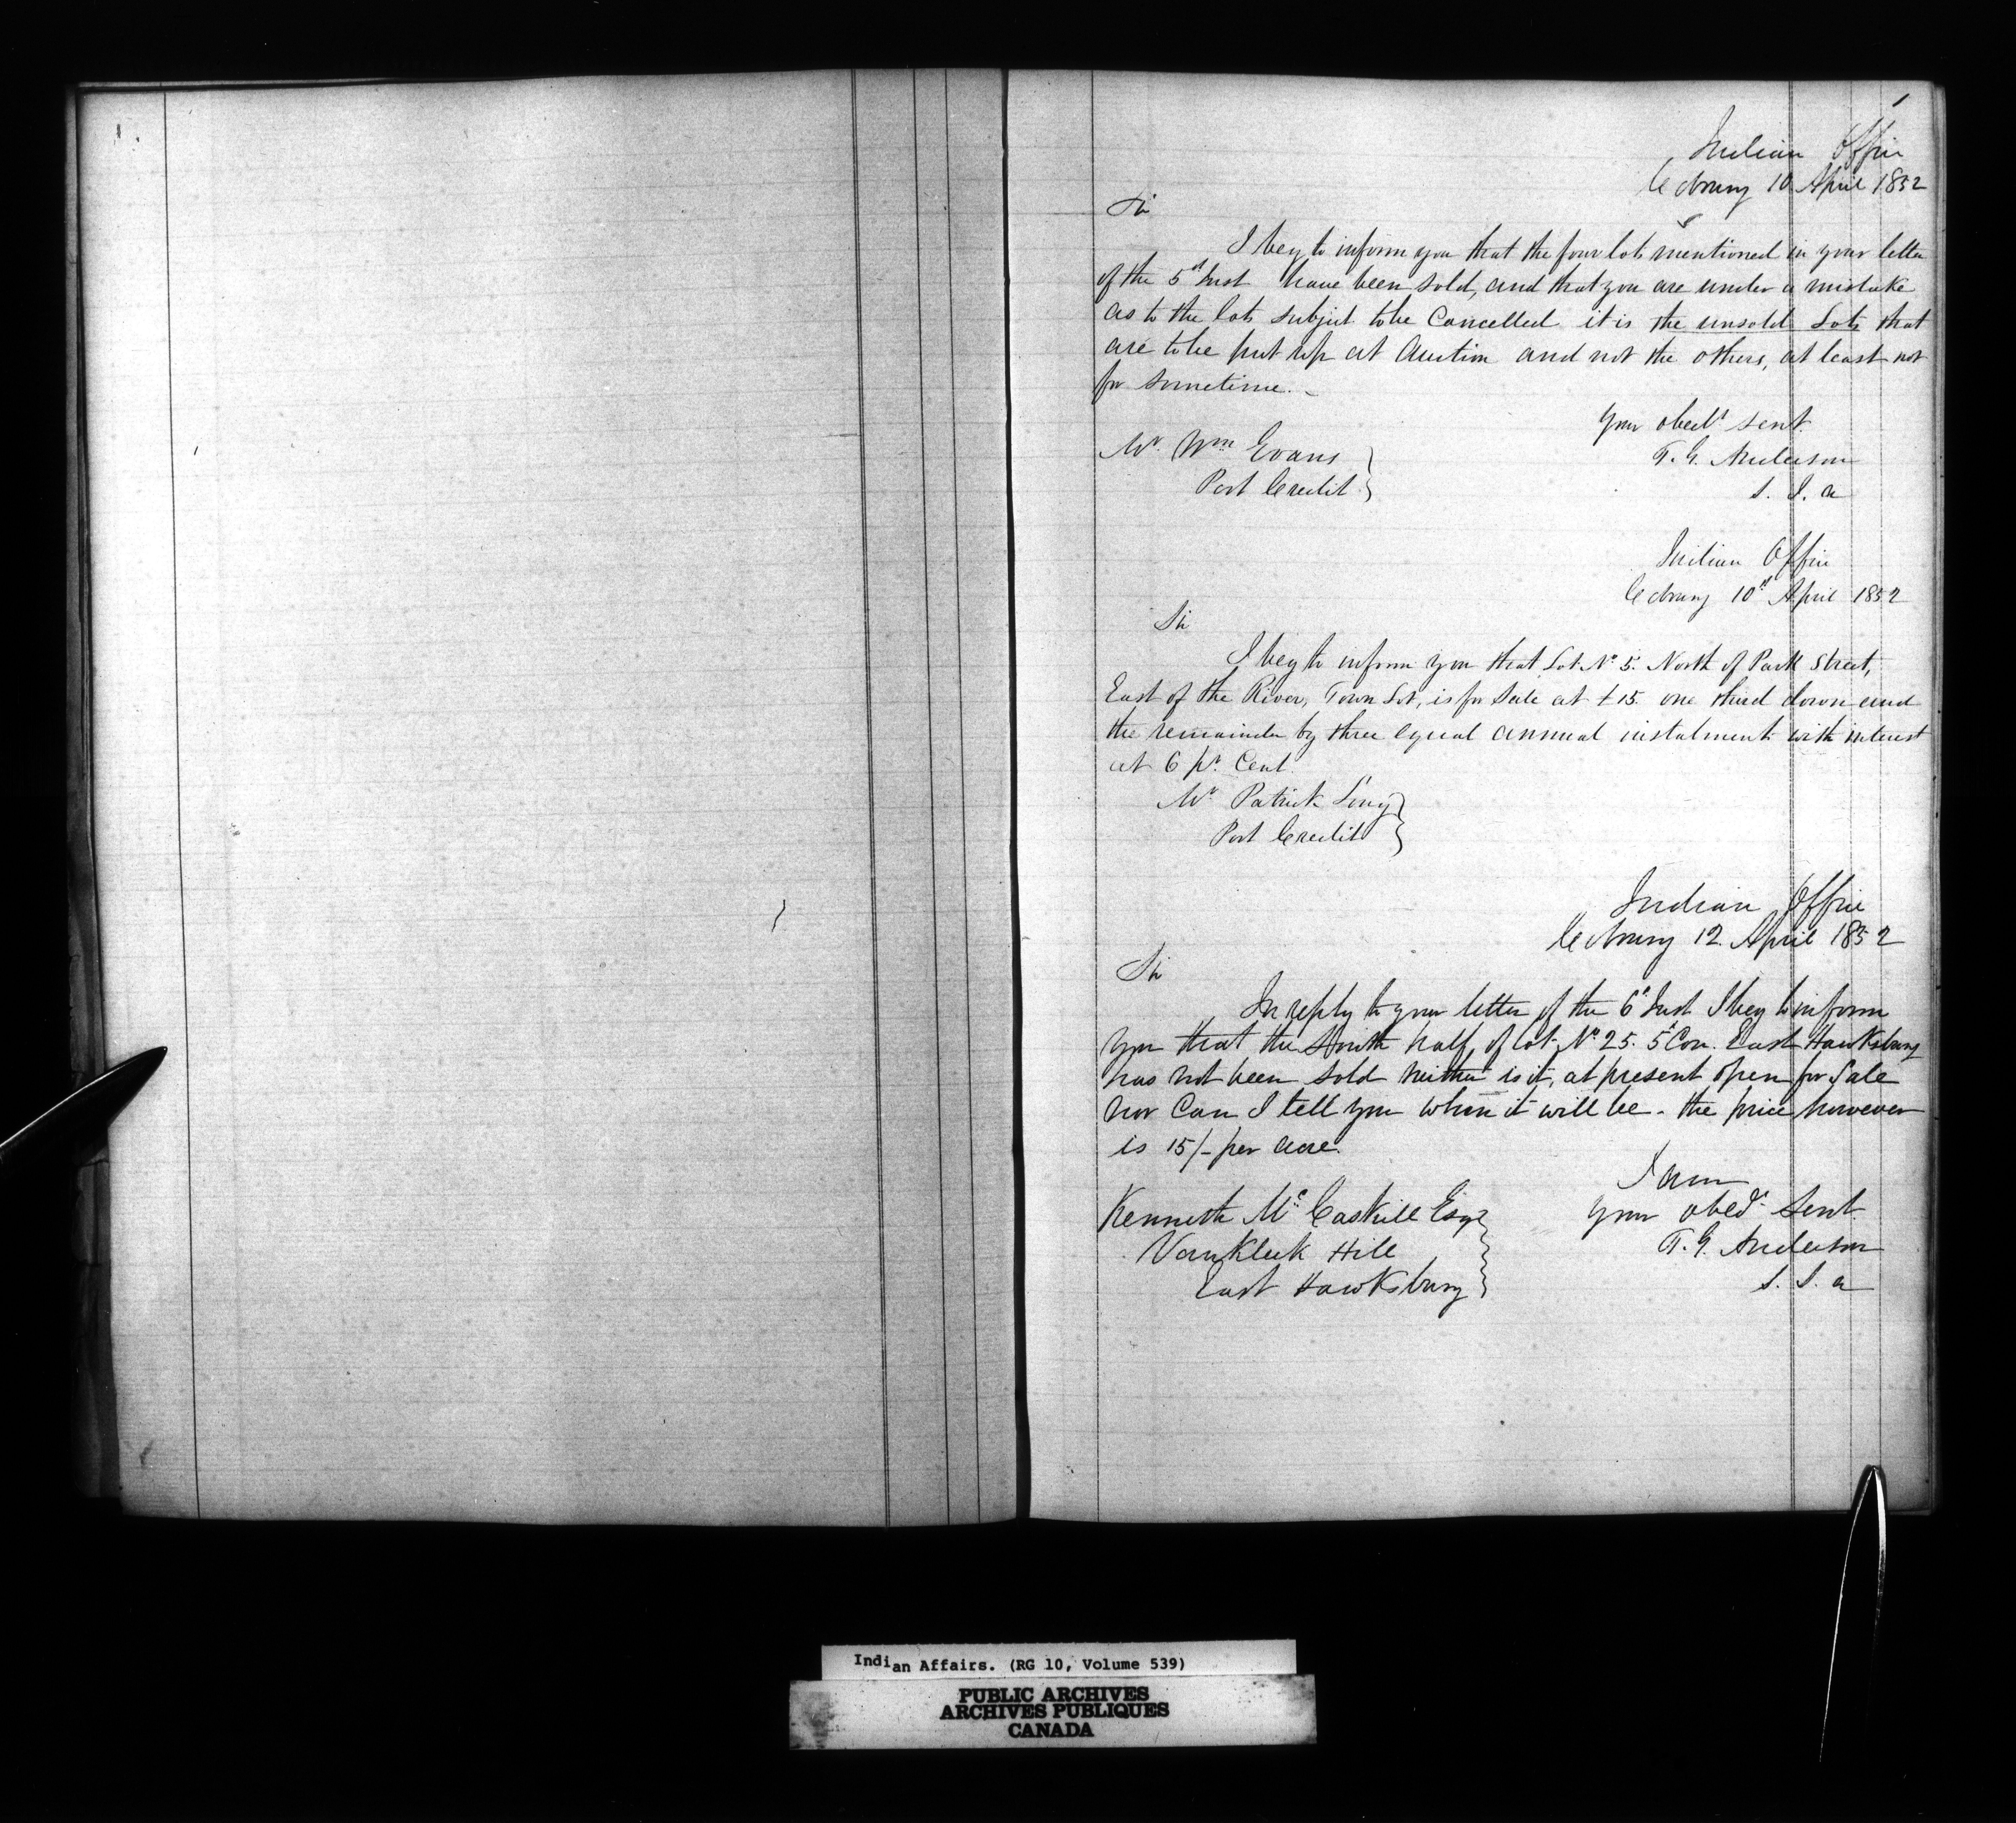 1
Indian Office
Cobourg 10 April 1852
Sir
I beg to inform you that the four lots mentioned in your letter
of the 5th Inst have been sold, and that you are under a mistake
as to the lots subject to be Cancelled it is the unsold Lots that
are to be put up at Auction and not the others, at least not
for sometime. –
Your obedt servt
T. G. Anderson
S. I. A
Mr. Wm Evans
Port Credit
Indian Office
Cobourg 10th April 1852
Sir
I beg to inform you that Lot No 5. North of Park Street,
East of the River, Town Lot, is for Sale at £15. one third down and
the remainder by three equal annual instalments with interest
at 6 pr. Cent.
Mr Patrick
Port Credit
Indian Office
Cobourg 12. April 1852
Sir
In reply to your letter of the 6th Inst I beg to inform
you that the South half, of lot No 25. 5th Con. East Hawksbury
has not been sold neither is it, at present open for Sale
nor Can I tell you when it will be - the price however
is 15/- per acre.
I am
your obedt Servt
T. G. Anderson
S. I. A
Kenneth Mc Caskill Esqr
VanKleek Hill
East Hawksbury
Indian Affairs. (RG 10, Volume 539)
PUBLIC ARCHIVES
ARCHIVES PUBLIQUES
CANADA